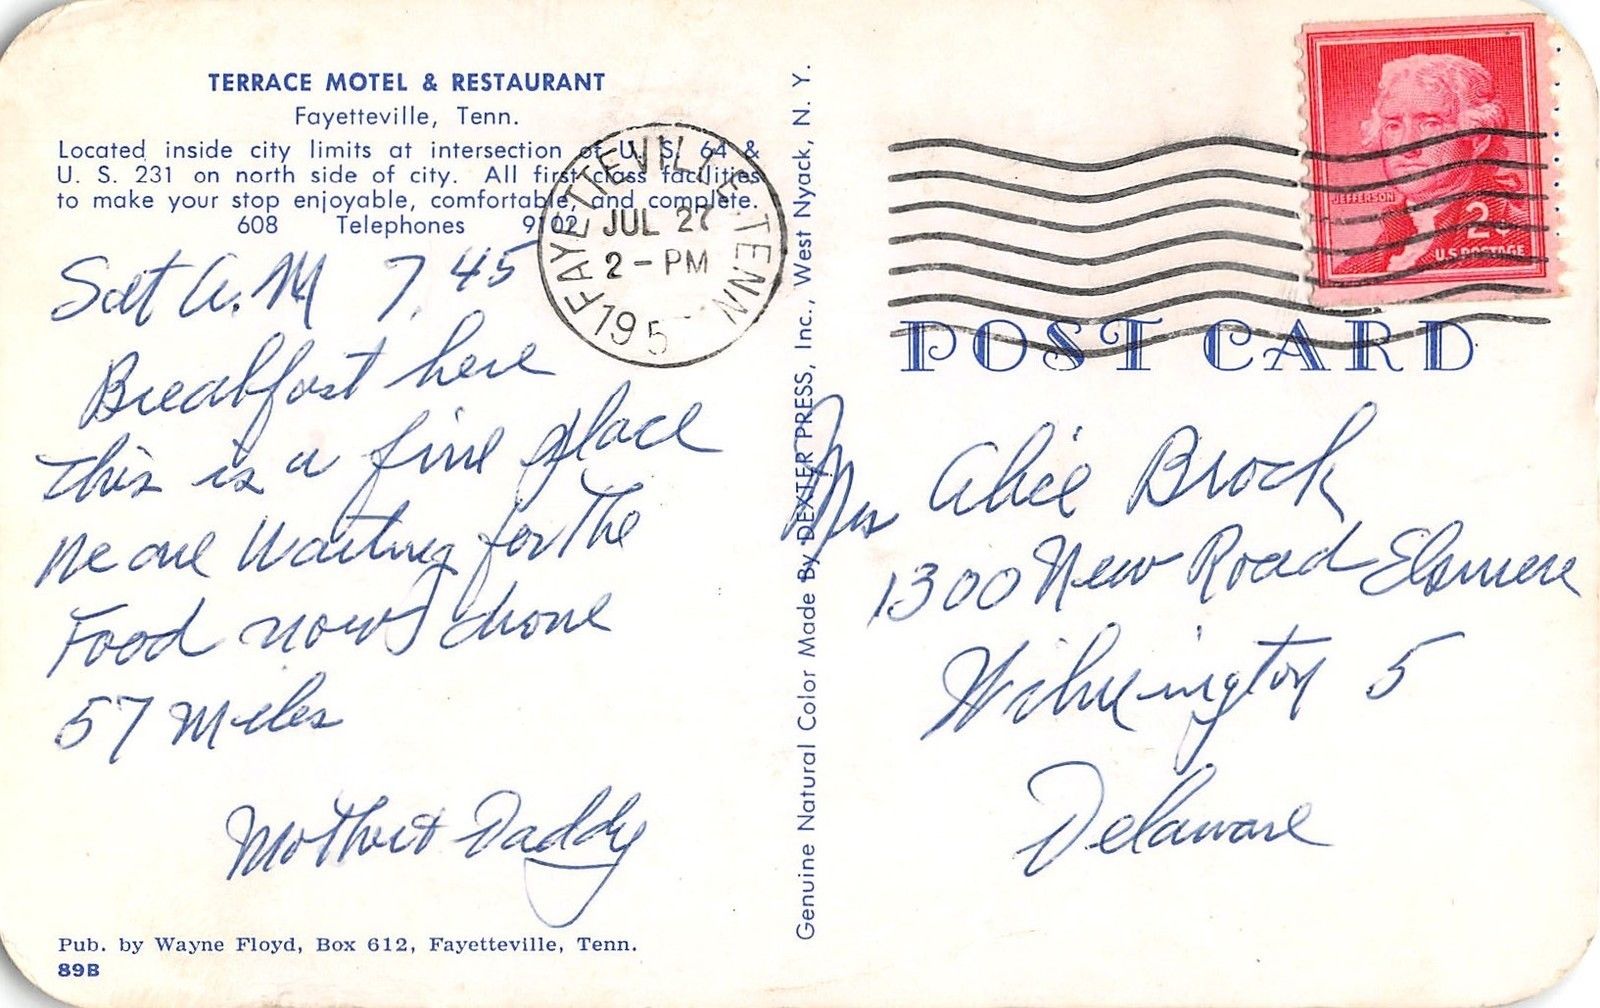 TERRACE MOTEL & RESTAURANT
Fayetteville, Tenn.
Located inside city limits at intersection of U. S. 64 &
U. S. 231 on north side of city. All first class facilities
to make your stop enjoyable, comfortable, and complete.
608 Telephones 9102
FAYETTEVILLE TENN
JUL 27
2 - PM
195
Sat A.M 7.45
Breakfast here
This is a fine place
We are Waiting for The
Food now drone
57 Miles
Mother & Daddy
Pub. by Wayne Floyd, Box 612, Fayetteville, Tenn.
89B
Genuine Natural Color Made By DEXTER PRESS, Inc., West Nyack, N. Y.
JEFFERSON
2¢
U.S. POSTAGE
POST CARD
Mrs Alice Brock
1300 New Road Elsmere
Wilmington 5
Delaware